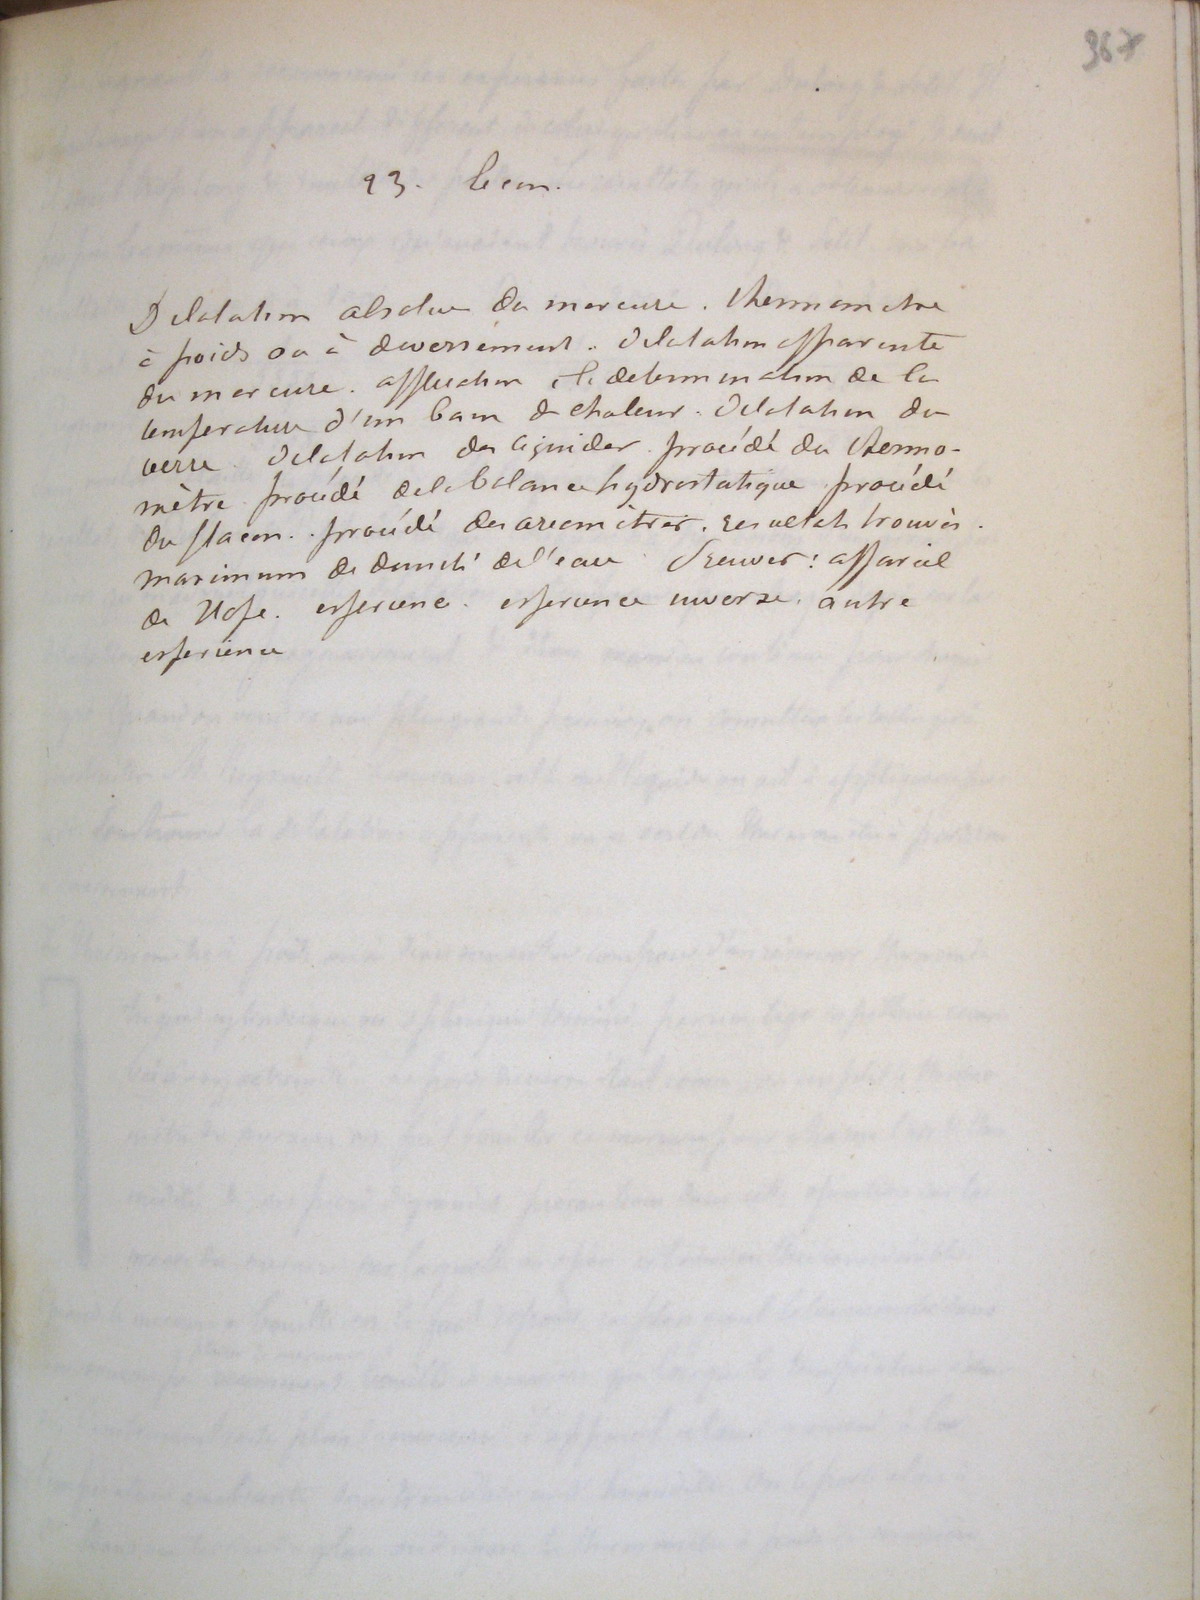 367
23. Leçon.
Dilatation absolue du mercure. thermomètre
à poids ou à deversement. Dilatation apparente
du mercure. application à la determination de la
temperature d'un bain de chaleur. Dilatation du
verre. Dilatation des liquides. procédé du thermo-
mètre procédé de la balance hydrostatique procédé
du flacon. procédé des areomètres. resultats trouvés.
maximum de densité de l'eau Preuves: appareil
de Hope. experience. experience inverse. autre
experience